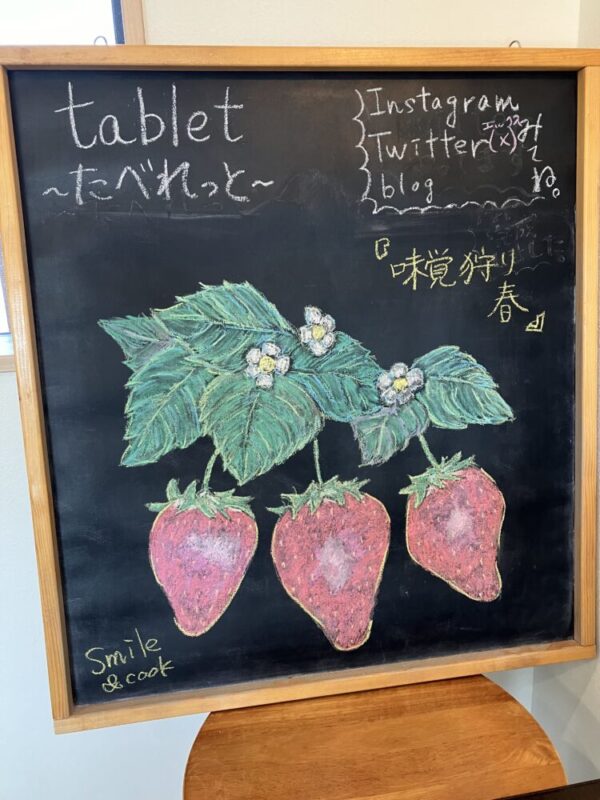 tablet
~たべれっと~
Instagram
Twitter(X)
blog
みてね。
『味覚狩り
春』
Smile
& cook